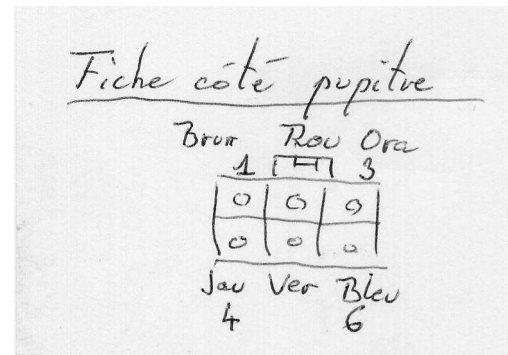 Fiche côté pupitre
Brun Rou Ora
1 3
Jau Ver Bleu
4 6